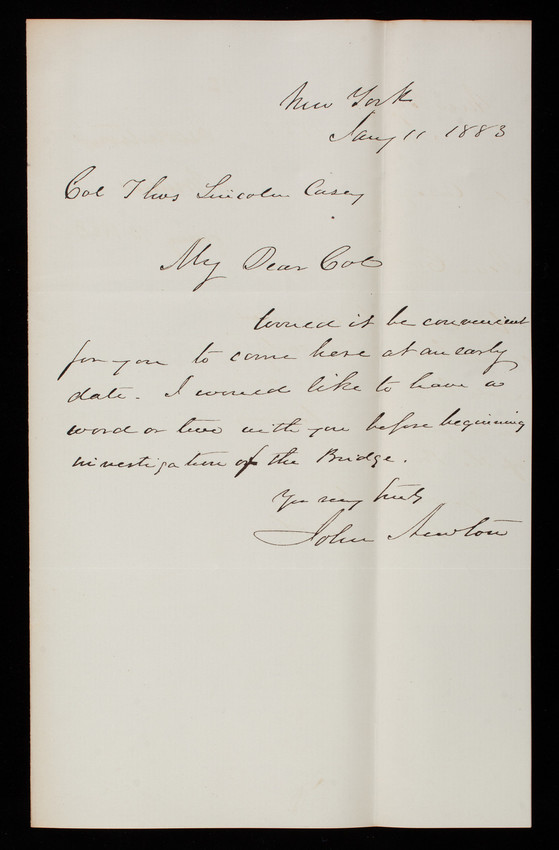 New York
Jany 11 1883
Col Thos Lincoln Casey
My Dear Col
Would it be convenient
for you to come here at an early
date. I would like to have a
word or two with you before beginning
investigation of the Bridge.
Yrs very truly
John Newton